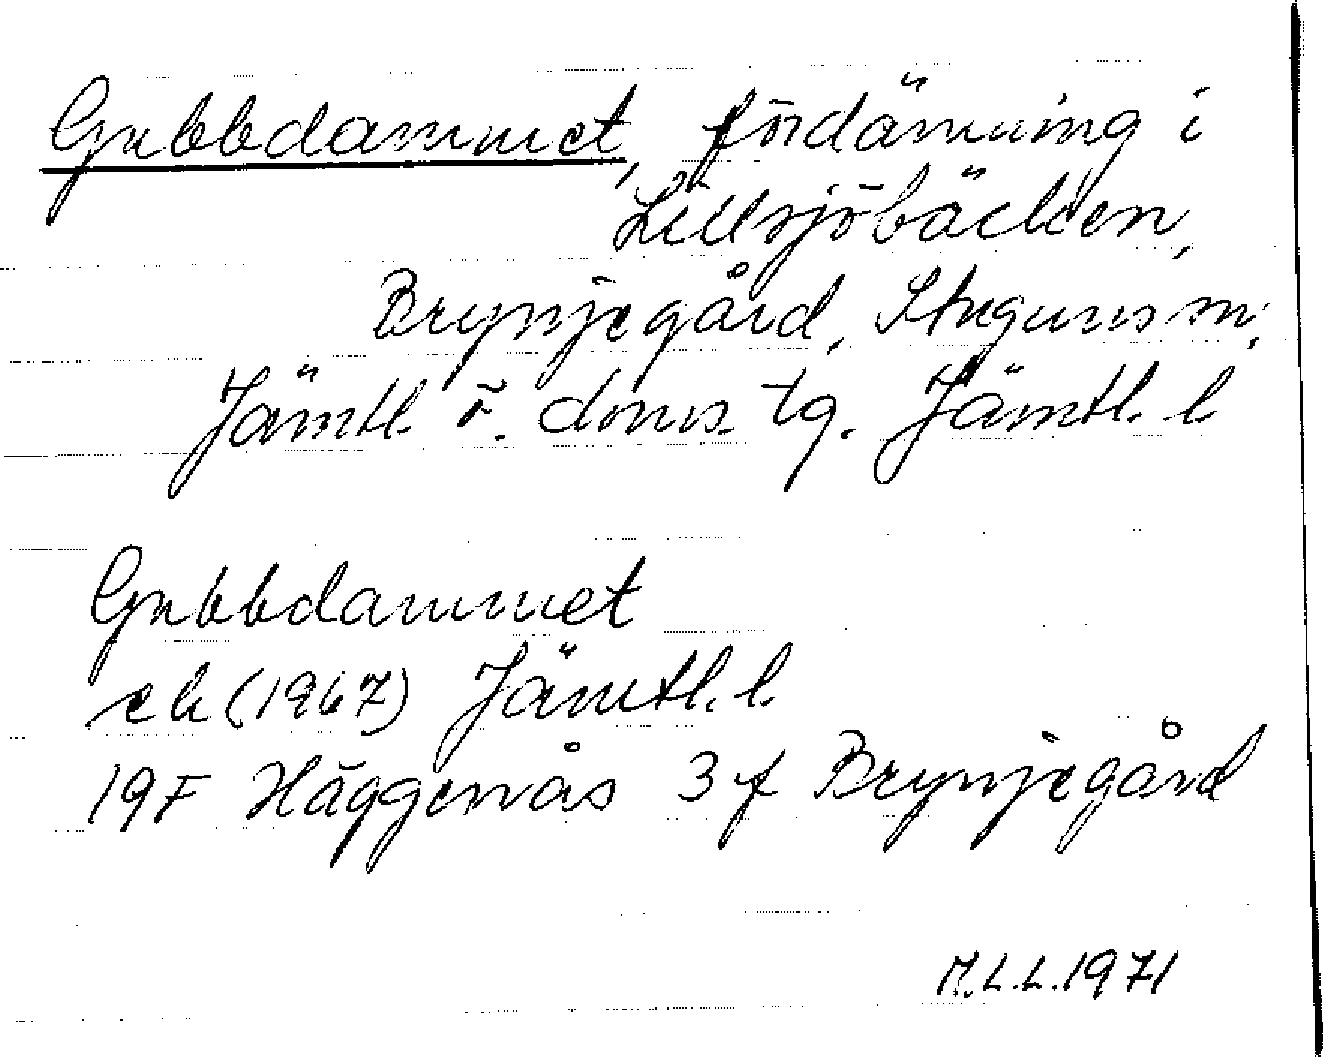 Gubbdammet, fördämning i
Lillsjöbäcken,
Brynjegård, Stuguns sn,
Jämtl. ö. doms. tg. Jämtl. l
Gubbdammet
ek (1967) Jämtl. l.
19F Häggenås 3f Brynjegård
M.L.L. 1971